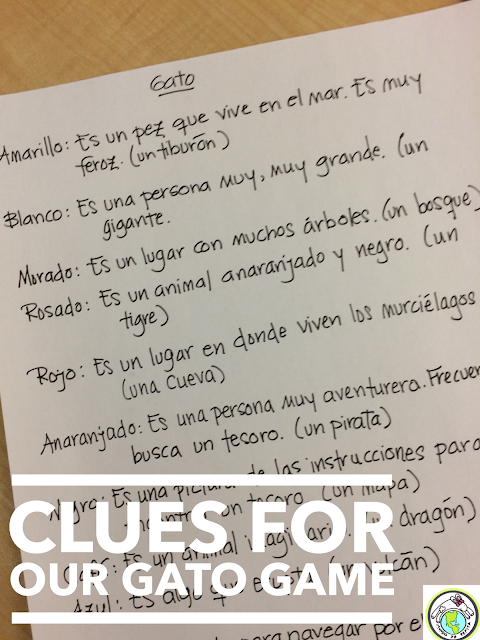 Gato
Amarillo: Es un pez que vive en el mar. Es muy
feroz. (un tiburón)
Blanco: Es una persona muy, muy grande. (un
gigante.
Morado: Es un lugar con muchos árboles. (un bosque)
Rosado: Es un animal anaranjado y negro. (un
tigre)
Rojo: Es un lugar en donde viven los murciélagos
(una cueva)
Anaranjado: Es una persona muy aventurera. Frecuen
busca un tesoro. (un pirata)
Negro: Es una de las instrucciones para
un tesoro. (un mapa)
Es un animal dragón)
Azul: Es algo que
para navegar por e
CLUES FOR
OUR GATO GAME